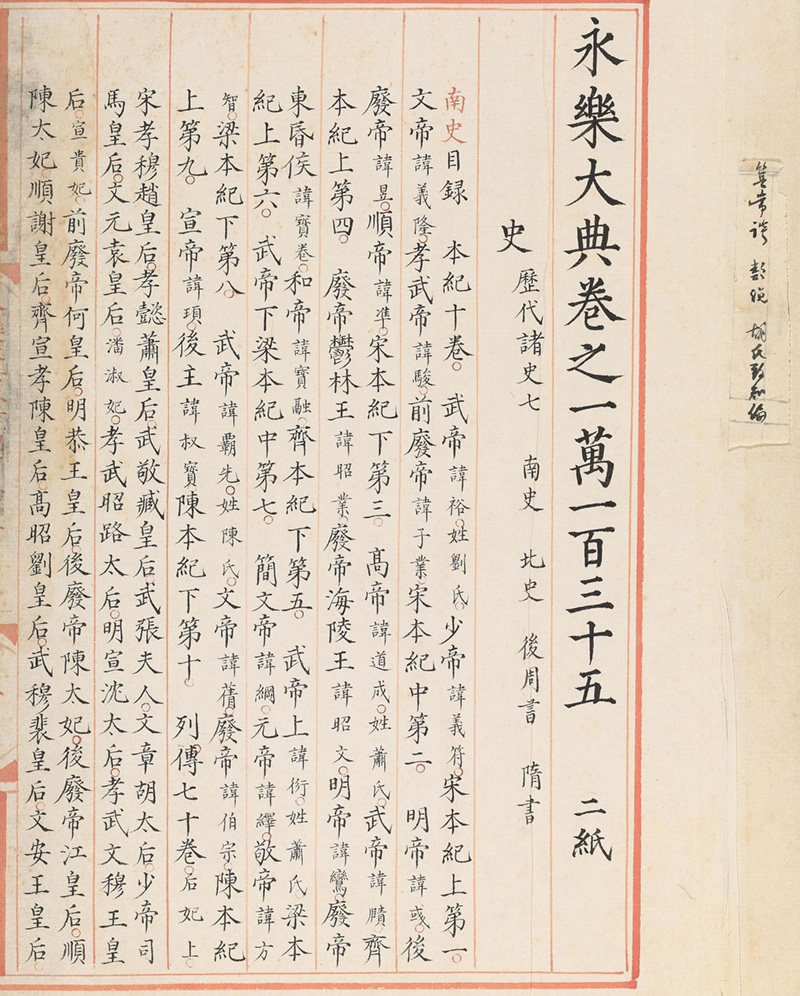 永樂大典卷之一萬一百三十五 二紙
史 歷代諸史七 南史 北史 後周書 隋書
南史目録 本紀十卷。 武帝諱裕。姓劉氏。少帝諱義符。宋本紀上第一。
文帝諱義隆。孝武帝諱駿。前廢帝諱子業。宋本紀中第二。 明帝諱彧。後
廢帝諱昱。順帝諱準。宋本紀下第三。 髙帝諱道成。姓蕭氏。武帝諱賾。齊
本紀上第四。 廢帝鬱林王諱昭業。廢帝海陵王諱昭文。明帝諱鸞。廢帝
東昏侯諱寳卷。和帝諱寳融。齊本紀下第五。 武帝上諱衍。姓蕭氏。梁本
紀上第六。 武帝下梁本紀中第七。 簡文帝諱綱。元帝諱繹。敬帝諱方
智。梁本紀下第八。 武帝諱霸先。姓陳氏。文帝諱蒨。廢帝諱伯宗。陳本紀
上第九。 宣帝諱頊。後主諱叔寳。陳本紀下第十。 列傳七十卷。后妃上。
宋孝穆趙皇后。孝懿蕭皇后武敬臧皇后武張夫人。文章胡太后。少帝司
馬皇后。文元袁皇后。潘淑妃。孝武昭路太后。明宣沈太后。孝武文穆王皇
后。宣貴妃。前廢帝何皇后。明恭王皇后。後廢帝陳太妃。後廢帝江皇后。順
陳太妃順謝皇后。齊宣孝陳皇后。髙昭劉皇后。武穆裴皇后。文安王皇后。